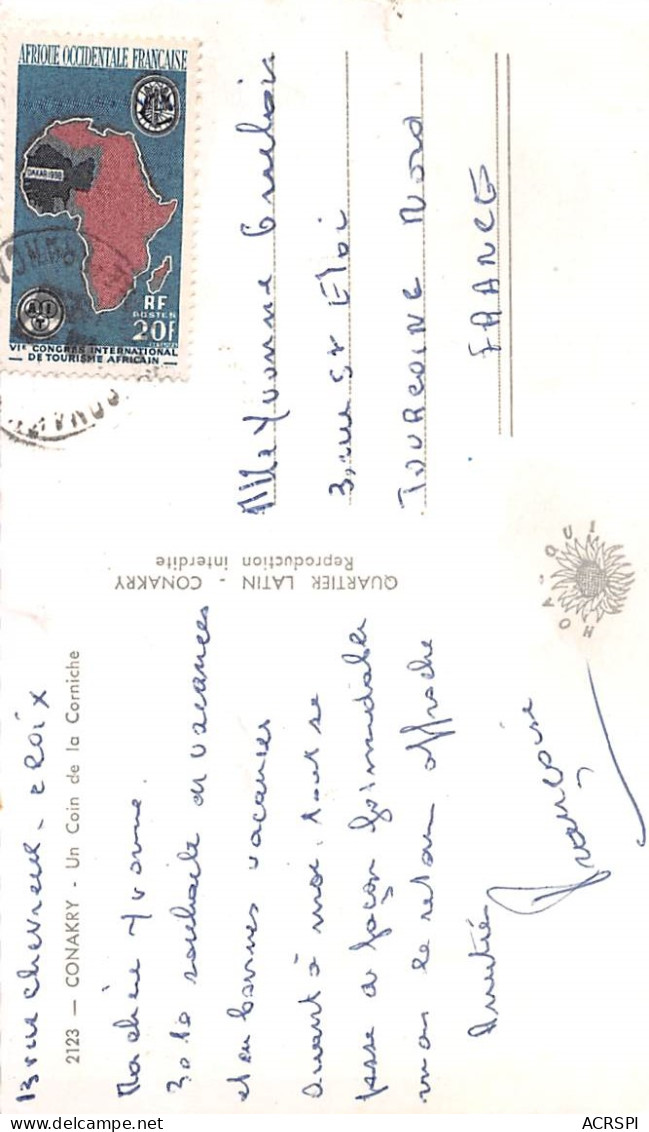 13 rue chevreul - CROIX
2123 — CONAKRY - Un Coin de la Corniche
Ma chère Yvonne.
souhaite en vacances
et en bonnes vacances
Quant à moi, tout se
passe de façon formidable
mais le retour approche
Amitiés
Françoise
QUARTIER LATIN - CONAKRY
Reproduction interdite
HOA-QUI
AFRIQUE OCCIDENTALE FRANÇAISE
DAKAR 1958
AIT
RF
POSTES
20F
VIe CONGRES INTERNATIONAL
DE TOURISME AFRICAIN
Mlle Yvonne
3, rue St Eloi
TOURCOING Nord
FRANCE
ACRSPI